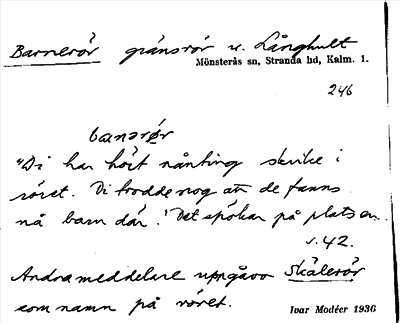 Barnerör gränsrör u. Långhult
Mönsterås sn, Stranda hd, Kalm. l.
246
banrør
"Di har hört nånting skrike i
röret. Di trodde nog att de fanns
nå barn där." Det spökar på platsen.
s. 42.
Andra meddelare uppgåvo Skälerör
som namn på röret.
Ivar Modéer 1936